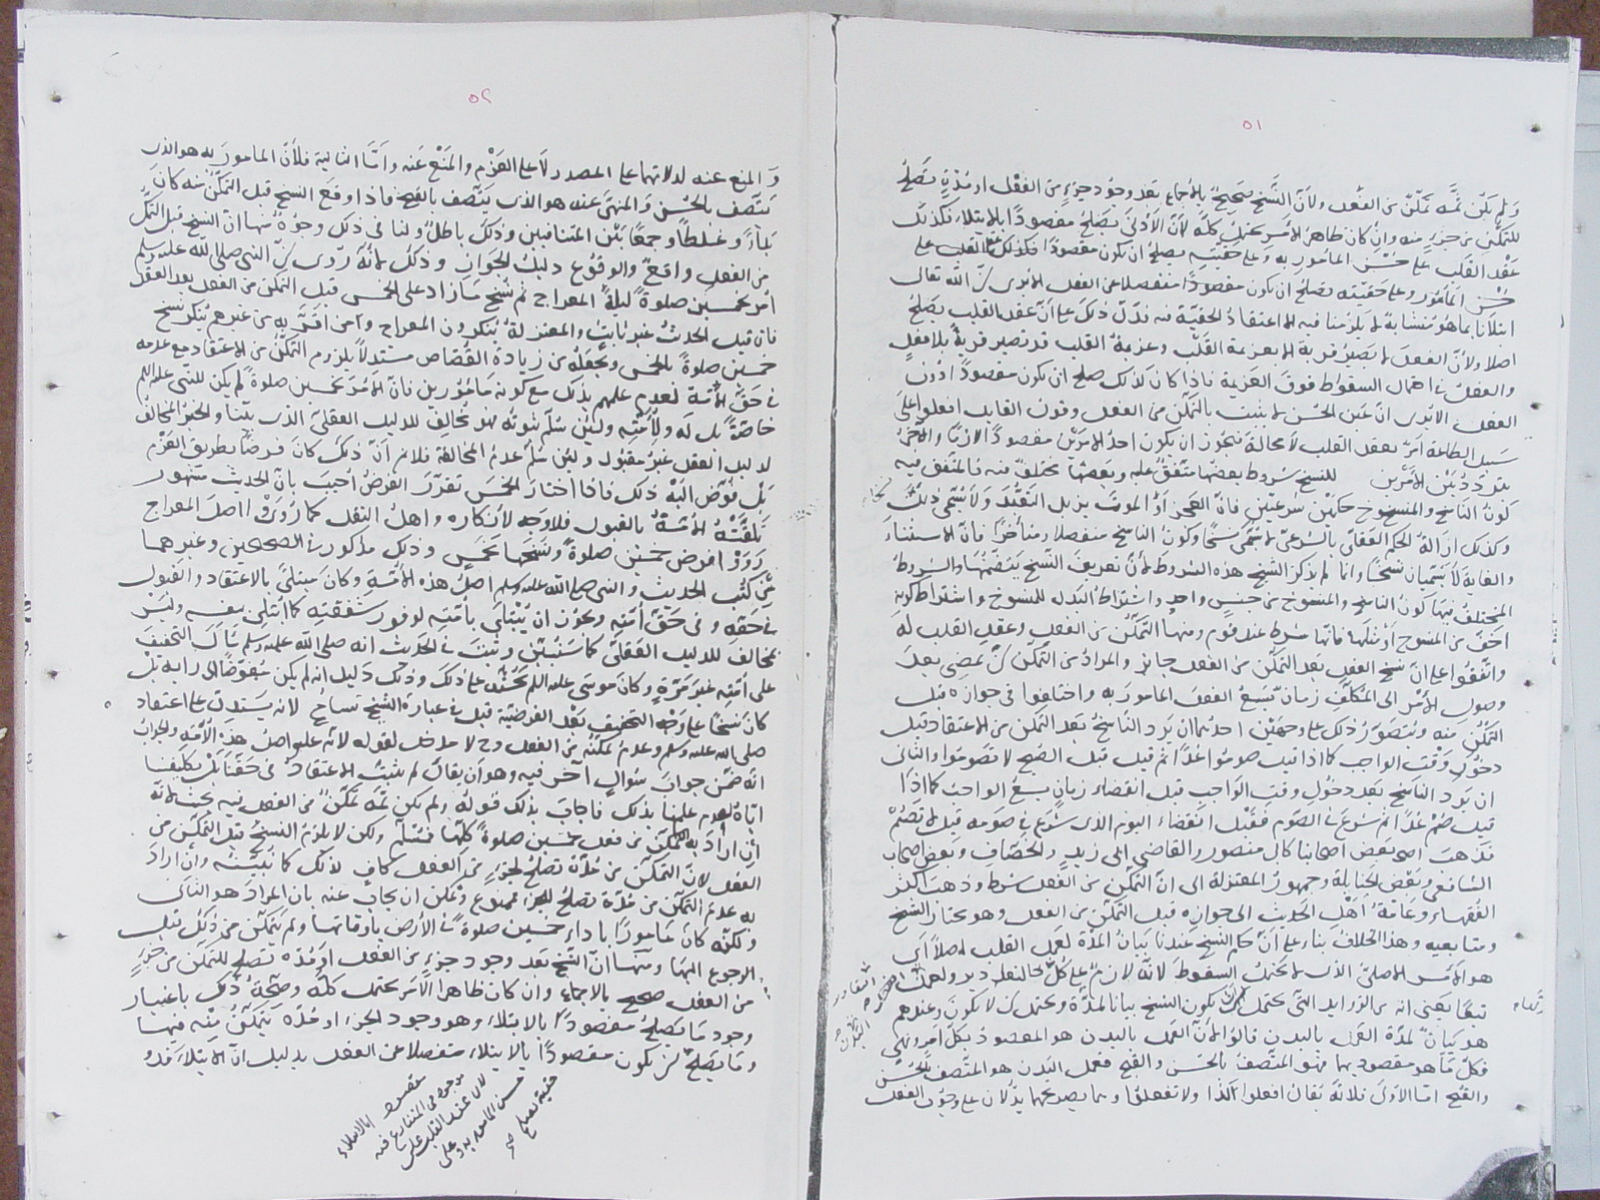 ٥١
ولم يكن ثمه تمكن من الفعل ولأن النسخ صحيح بالاجماع بعد وجود جزء من الفعل او مدة تصلح
للتمكن من جزء منه وان كان ظاهر الامر يحتمل كله لأن الأدنى يصلح مقصودا بالابتلاء فكذلك
عقد القلب على حسن المأمور به وعلى حقيته يصلح ان يكون مقصودا
حسن المأمور وعلى حقيته يصلح ان يكون مقصودا منفصلا عن الفعل الا يرى ان الله تعالى
ابتلانا بما هو متشابه لا يلزمنا فيه الا اعتقاد الحقية فيه فدل ذلك على ان عقد القلب يصلح
اصلا ولأن الفعل لا يصير قربة الا بعزيمة القلب وعزيمة القلب قد تصير قربة بلا فعل
والفعل في احتمال السقوط فوق العزيمة فاذا كان كذلك صلح ان يكون مقصودا دون
الفعل الا يرى ان عين الحسن لا يثبت بالتمكن من الفعل وقول القايل افعلوا على
سبيل الطاعة امر بعقد القلب لا محالة فيجوز ان يكون احد الامرين مقصودا لازما والآخر
يتردد بين الأمرين للنسخ شروط بعضها متفق عليه وبعضها مختلف فيه فالمتفق فيه
كون الناسخ والمنسوخ حكمين شرعيين فان العجز او الموت يزيل التعبد ولا يسمى ذلك
وكذلك ازالة الحكم العقلي بالشرعي لا تسمى نسخا وكون الناسخ منفصلا متأخرا فان الاستثناء
والغاية لا يسميان نسخا وانما لم يذكر الشيخ هذه الشروط لأن تعريف النسخ يتضمنها والشروط
المختلف فيها كون الناسخ والمنسوخ من جنس واحد واشتراط البدل للمنسوخ واشتراط كونه
اخف من المنسوخ او مثلها فانها شرط عند قوم ومنها التمكن من الفعل وعقد القلب له
واتفقوا على ان نسخ الفعل بعد التمكن من الفعل جايز والمراد من التمكن ان يمضي بعد
وصول الأمر الى المكلف زمان يسع الفعل المامور به واختلفوا في جوازه قبل
التمكن منه ويتصور ذلك على وجهين احدهما ان يرد الناسخ بعد التمكن من الاعتقاد قبل
دخول وقت الواجب كما اذا قيل صوموا غدا ثم قيل قبل الصبح لا تصوموا والثاني
ان يرد الناسخ بعد دخول وقت الواجب قبل انقضاء زمان يسع الواجب كما اذا
قيل صم غدا ثم شرع في الصوم فقبل انقضاء اليوم الذى شرع في صومه قيل لا تصم
فذهب بعض اصحابنا كابي منصور والقاضي ابى زيد والخصاف وبعض اصحاب
الشافعى وبعض الحنابلة وجمهور المعتزلة الى ان التمكن من الفعل شرط وذهب اكثر
الفقهاء وعامة اهل الحديث الى جوازه قبل التمكن من الفعل وهو مختار الشيخ
ومتابعيه وهذا الخلاف بناء على ان حكم النسخ عندنا بيان المدة لعمل القلب اصلا اي
هو الامر الاصلي الذى لا يحتمل السقوط لانه لازم على كل حال
تبعا يعني انه من الزوايد التي يحتمل ان يكون النسخ بيانا لمدة ويحتمل ان لا يكون وعندهم
هو بيان لمدة العمل بالبدن قالوا لأن العمل بالبدن هو المقصود بكل امر ونهي
فكل ما هو مقصود بهما فهو المتصف بالحسن والقبح ففعل البدن هو المتصف بالحسن
والقبح اما الاولى فلانه يقال افعلوا كذا ولا تفعلوا وبما يصرحهما يدلان على وجوب الفعل
٥٢
والمنع عنه لدلالتهما على المصدر لا على العزم والمنع عنه واما الثانية فلأن المامور به هو الذى
يتصف بالحسن والمنهي عنه هو الذى يتصف بالقبح فاذا وقع النسخ قبل التمكن منه كان
بداء وغلطا وجمعا بين المتنافيين وذلك باطل ولنا في ذلك وجوه منها ان النسخ قبل التمكن
من الفعل واقع والوقوع دليل الجواز وذلك لانه روى ان النبى صلى الله عليه وسلم
امر بخمسين صلوة ليلة المعراج ثم نسخ ما زاد على الخمس قبل التمكن من الفعل بعد العقد
فان قيل الحديث غير ثابت والمعتزلة ينكرون المعراج ومن اقر به من غيرهم ينكر نسخ
خمسين صلوة بالخمس ويجعله من زيادة القصاص مستدلا بلزوم التمكن من الاعتقاد مع عدمه
في حق الأمة لعدم علمهم بذلك مع كونه مامورين فان الامر بخمسين صلوة لم يكن للنبي عليه السلم
خاصة بل له ولأمته ولئن سلم ثبوته فهو مخالف للدليل العقلي الذى بينا والخبر المخالف
لدليل العقل غير مقبول ولئن سلم عدم المخالفة فلا نم ان ذلك كان فرضا بطريق العزم
بل فوض اليه ذلك فاذا اختار الخمس تقرر الفرض اجيب بأن الحديث مشهور
تلقته الأمة بالقبول فلا وجه لانكاره واهل النقل كما رووا اصل المعراج
رووا فرض خمسين صلوة ونسخها بخمس وذلك مذكور في الصحيحين وغيرهما
من كتب الحديث والنبى صلى الله عليه وسلم اصل هذه الأمة وكان مبتلى بالاعتقاد والقبول
في حقه وفي حق امته ويجوز ان يبتلى بامته لوفور شفقته كما ابتلى بنفسه وليس
بمخالف للدليل العقلي كما سنبين وثبت في الحديث انه صلى الله عليه وسلم سأل التخفيف
على امته غير مرة وكان موسى عليه السلم يحثه على ذلك وذلك دليل انه لم يكن مفوضا الى رايه بل
كان نسخا على وجه التخفيف بعد الفرضية قيل في عبارة الشيخ تسامح لانه يستدل على اعتقاد
صلى الله عليه وسلم وعدم تمكنه من الفعل وح لا مدخل لقوله لانه عليه اصل هذه الأمة والجواب
انه ضمن جواب سؤال آخر فيه وهو ان يقال لم يثبت الاعتقاد في حقنا بل تكليفنا
اياه لعدم علمنا بذلك فاجاب بذلك قوله ولم يكن ثمه تمكن من الفعل فيه بحث لانه
ان اراد به التمكن من فعل خمسين صلوة كلها فمسلم ولكن لا يلزم النسخ قبل التمكن من
الفعل لان التمكن من مدة تصلح لجزء من الفعل كاف لذلك كما نبينه وان اراد
به عدم التمكن من مدة تصلح للجزء فممنوع ويمكن ان يجاب عنه بان المراد هو الثاني
ولكنه كان مامورا باداء خمسين صلوة في الأرض باوقاتها ولم يتمكن من ذلك قبل
الرجوع اليها ومنها ان النسخ بعد وجود جزء من الفعل او مدة تصلح للتمكن من جزء
من الفعل صحيح بالاجماع وان كان ظاهر الأمر يحتمل كله وصحة ذلك باعتبار
وجود ما يصلح مقصودا بالابتلاء وهو وجود الجزء او مدة يتمكن منه فيها
وما يصلح ان يكون مقصودا بالابتلاء منفصلا عن الفعل بدليل ان الابتلاء قد و
مقصودا بالابتلاء
موجود في المتنازع فيه
لان عقد القلب على
حسن المامور به وعلى
حقيته يصلح